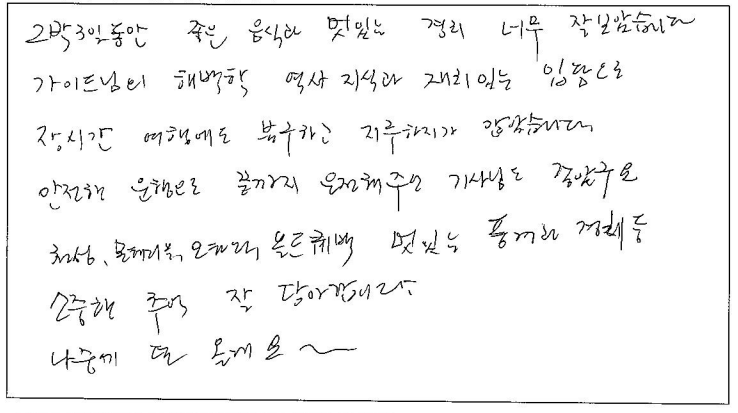 2박3일동안 좋은 음식과 멋있는 경치 너무 잘보았습니다
가이드님의 해박한 역사 지식과 재미있는 입담으로
장시간 여행에도 불구하고 지루하지가 않았습니다.
안전한 운행으로 끝까지 운전해주신 기사님도 좋았구요
천섬, 몬테리올, 오타와, 올드퀘벡 멋있는 풍경과
소중한 추억 잘 담아갑니다.
나중에 또 올께요~